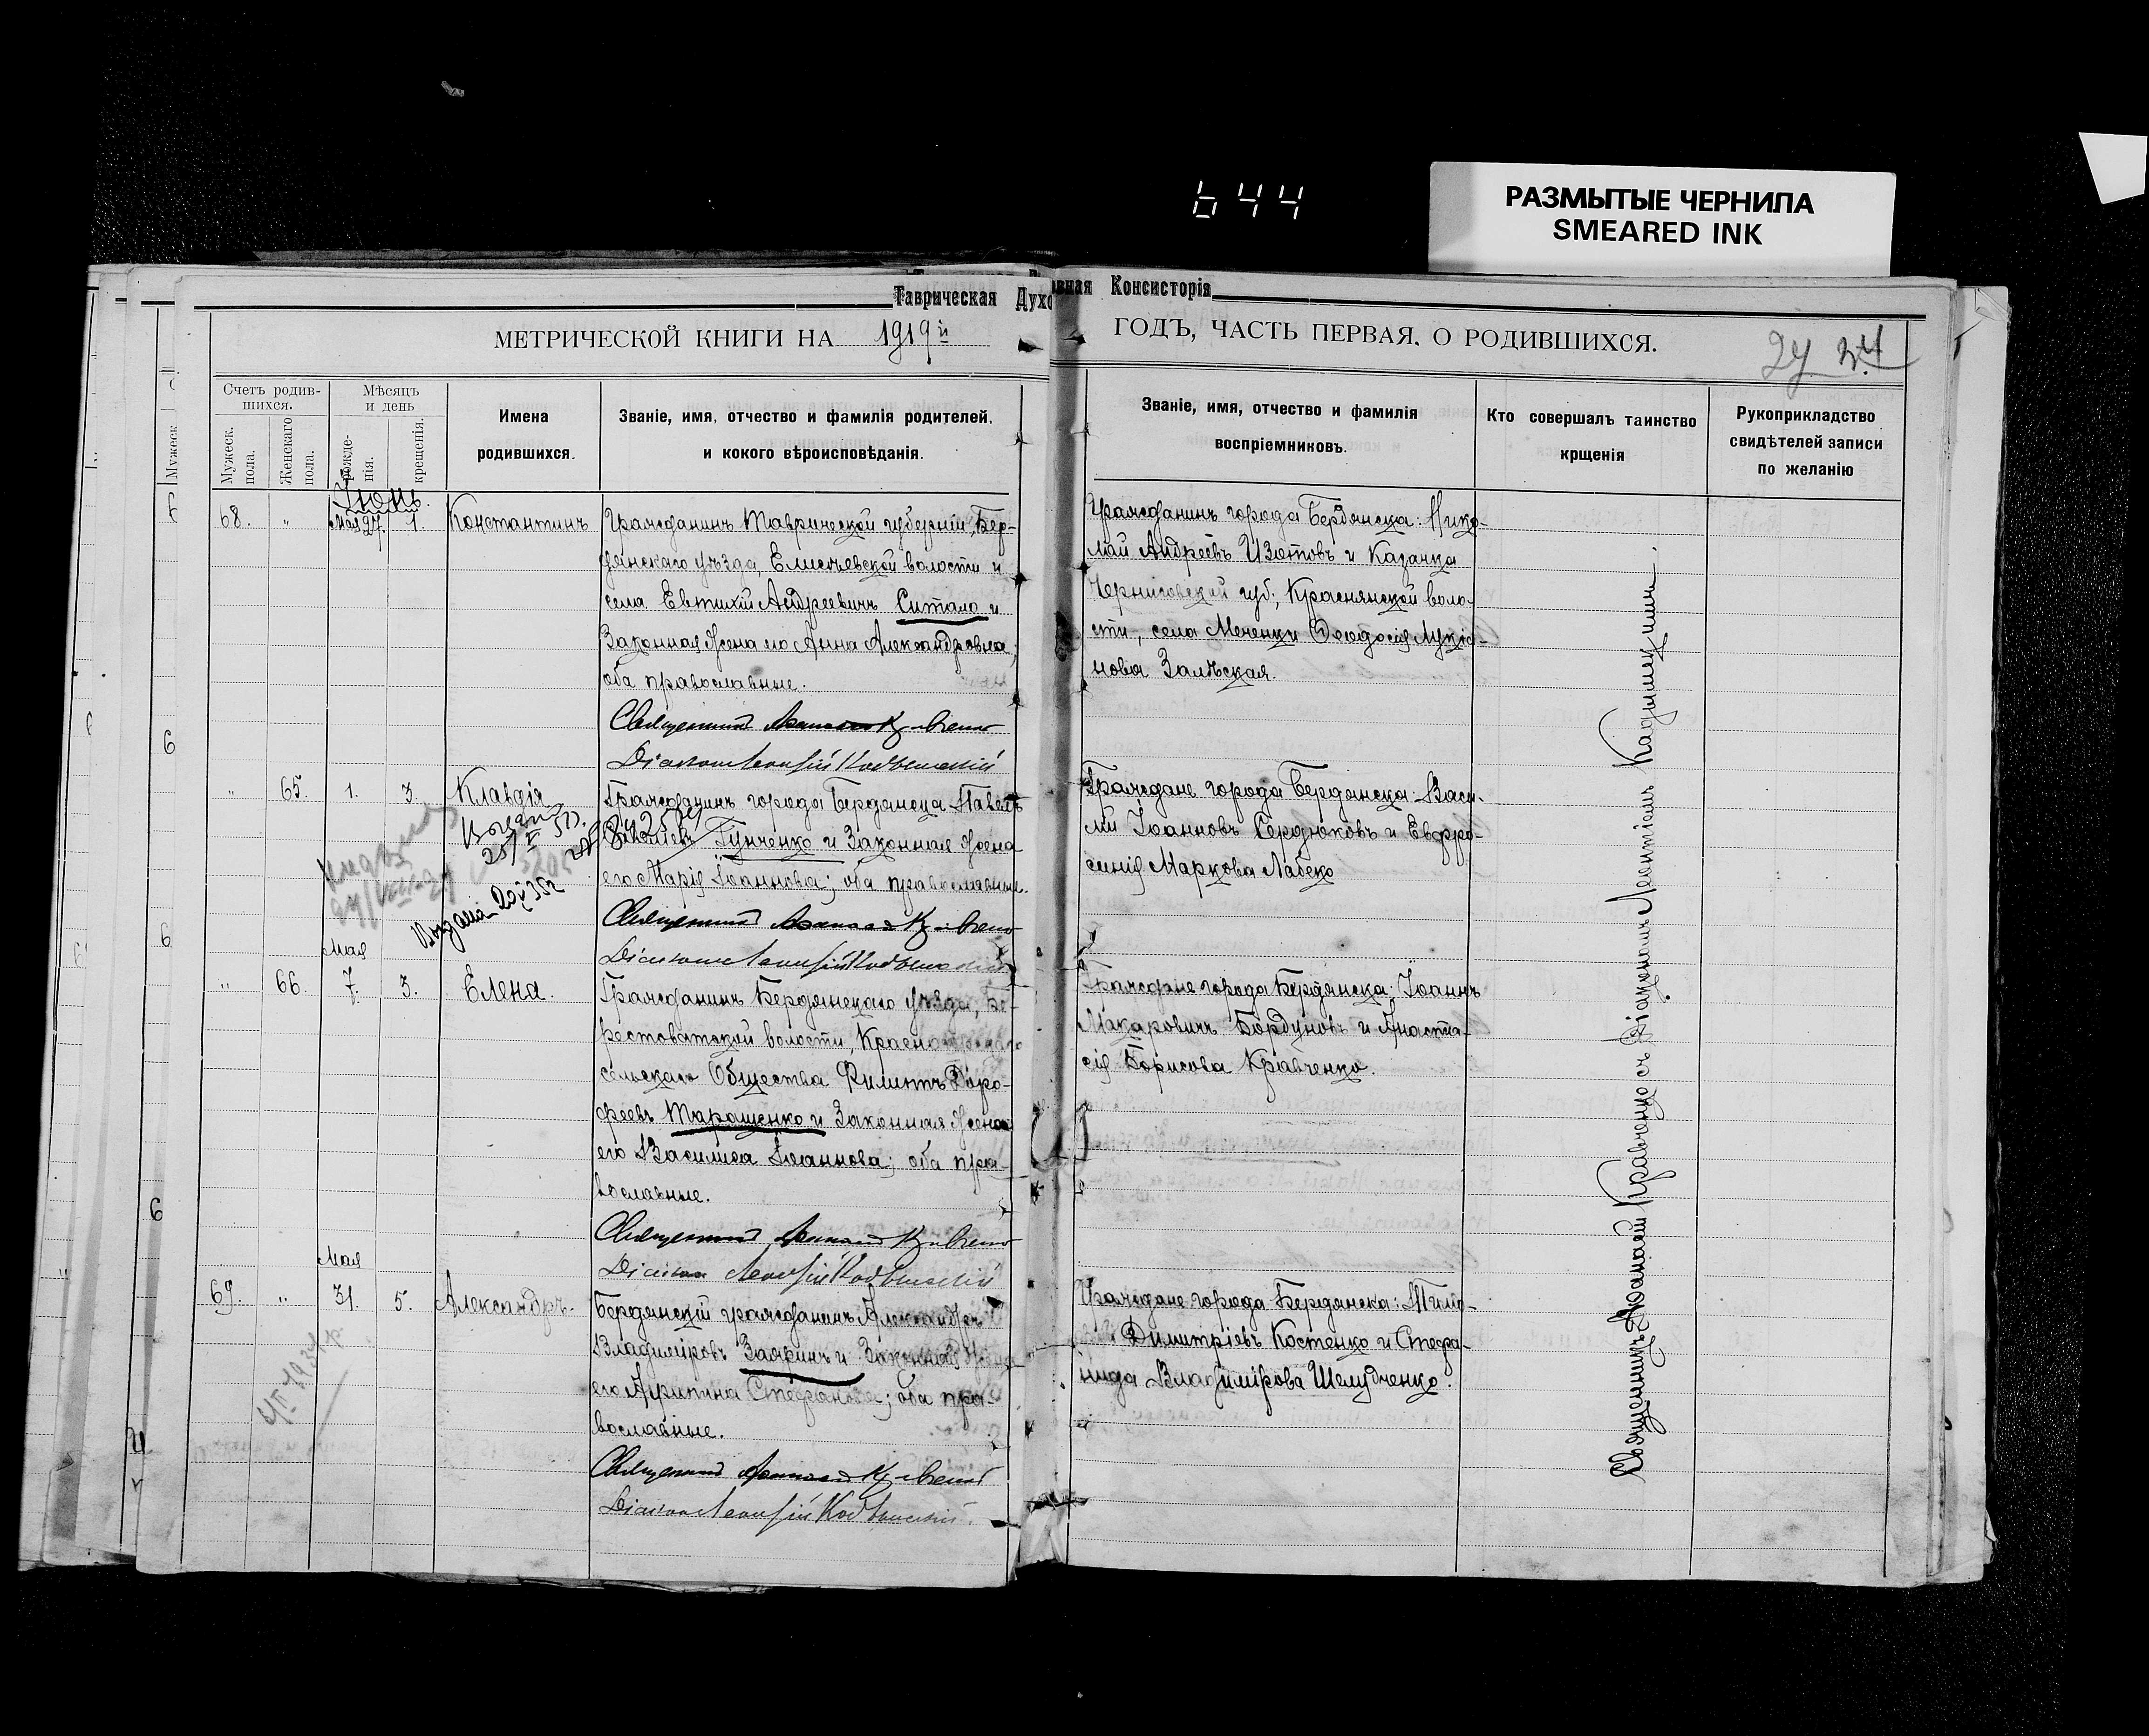 644
РАЗМЫТЫЕ ЧЕРНИЛА
SMEARED INK
Таврическая Духовная Консисторія
МЕТРИЧЕСКОЙ КНИГИ НА 1919й ГОДЪ, ЧАСТЬ ПЕРВАЯ, О РОДИВШИХСЯ.
27
Счетъ родив-
шихся.
Мужеск.
пола.
Женскаго
пола.
Мѣсяцъ
и день
рожде-
нія.
крещенія.
Имена
родившихся.
Званіе, имя, отчество и фамилія родителей,
и кокого вѣроисповѣданія.
Званіе, имя, отчество и фамилія
воспріемниковъ.
Кто совершалъ таинство
крщенія
Рукоприкладство
свидѣтелей записи
по желанію
Іюнь.
68. " Мая 27. 1. Константинъ
Гражданинъ Таврической губерніи, Бер-
дянскаго уѣзда, волости и
села Евтихій Андреевичъ Ситало и
Законная Жена его Анна Александровна;
оба православные.
Священникъ
Діаконъ Леонтій
Гражданинъ города Бердянска: Нико-
лай Андреевъ Изотовъ и Казачка
Черниговской губ., Краснянской воло-
сти, села Меченки Ѳеодосія Лукіа-
нова Залѣская.
" 65. 1. 3. Клавдія
Гражданинъ города Бердянска Павелъ
Гунченко и Законная Жена
его Марія Іоаннова; оба православные.
Священникъ
Діаконъ Леонтій
Граждане города Бердянска: Васи-
лій Іоанновъ Сердюковъ и Евфро-
синія Маркова Лабеко
Мая
" 66. 7. 3. Елена.
Гражданинъ Бердянскаго уѣзда, Бе-
рестоватской волости,
сельскаго Общества Филиппъ Доро-
феевъ Таращенко и Законная Жена
его Василиса Іоаннова; оба пра-
вославные.
Священникъ
Діаконъ Леонтій
Граждане города Бердянска: Іоаннъ
Макаровичъ Бордуновъ и Анаста-
сія Борисова Кравченко.
Мая
69. " 31. 5. Александръ.
Бердянскій гражданинъ Александръ
Владиміровъ Заяринъ и Законная Жена
его Стефанова; оба пра-
вославные.
Священникъ
Діаконъ Леонтій
Граждане города Бердянска:
Димитріевъ Костенко и Стефа-
нида Владимірова Шелудченко.
Священникъ Аѳанасій Кравченко съ Діакономъ Леонтіемъ